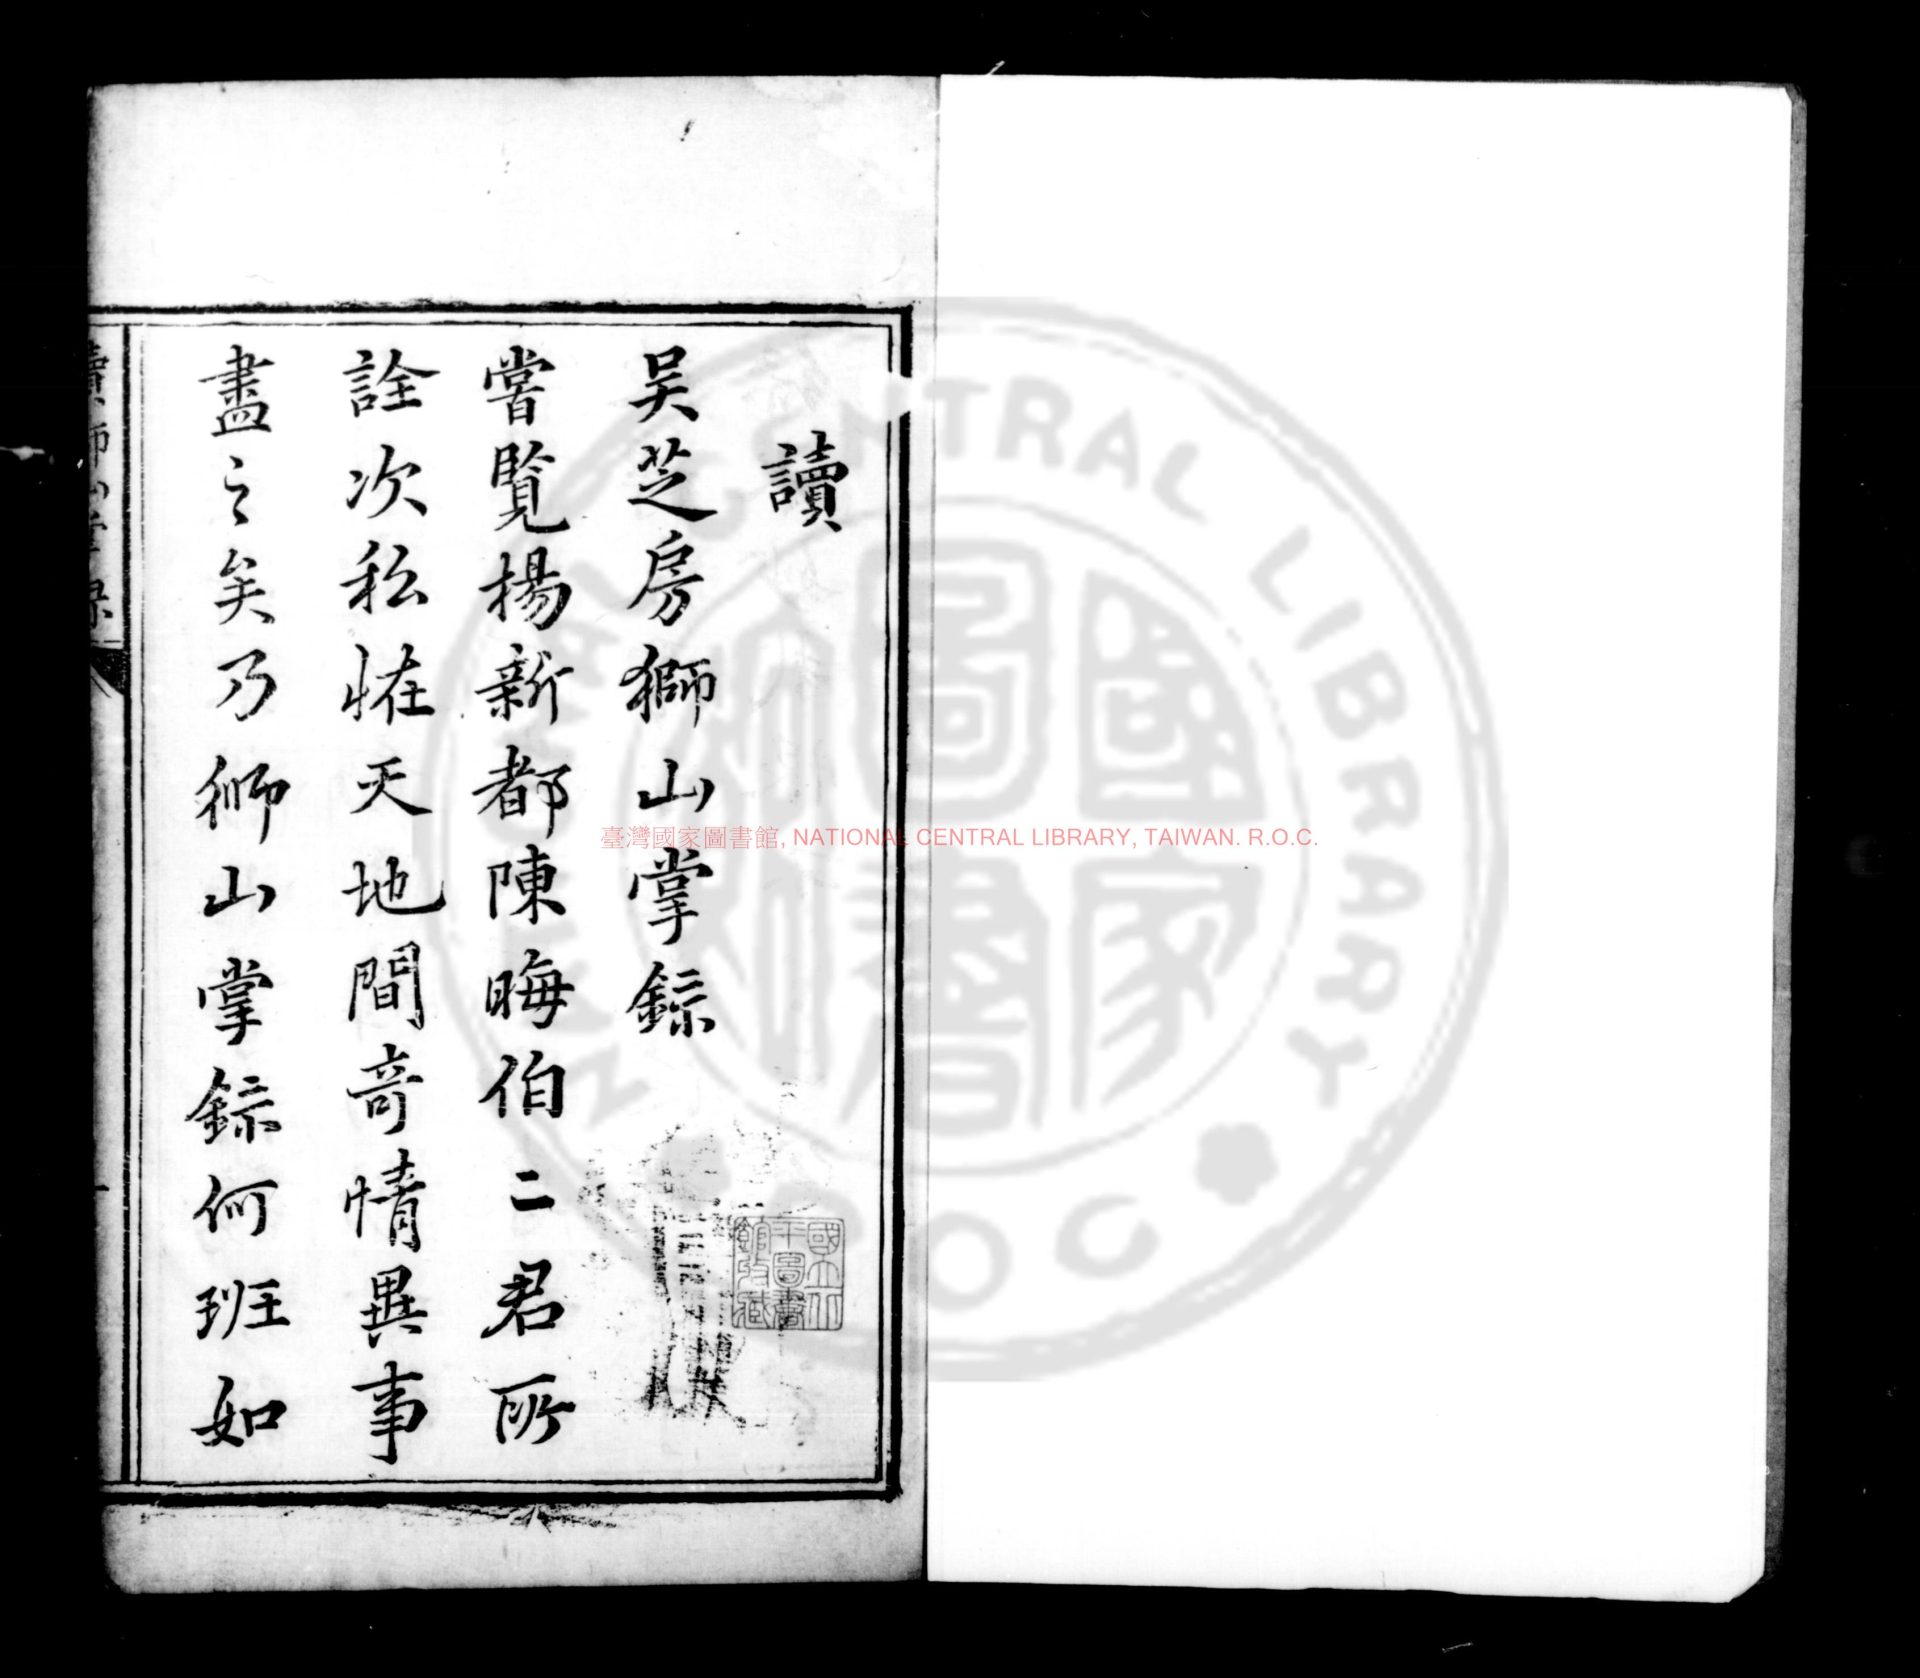 讀
吴芝房獅山掌錄
嘗覽楊新都陳晦伯二君所
詮次私恠天地間奇情異事
盡之矣乃獅山掌錄何班如
讀獅山掌錄
國立中
央圖書
館收藏
臺灣國家圖書館, NATIONAL CENTRAL LIBRARY, TAIWAN. R.O.C.
NATIONAL CENTRAL LIBRARY
R.O.C.
國家圖書